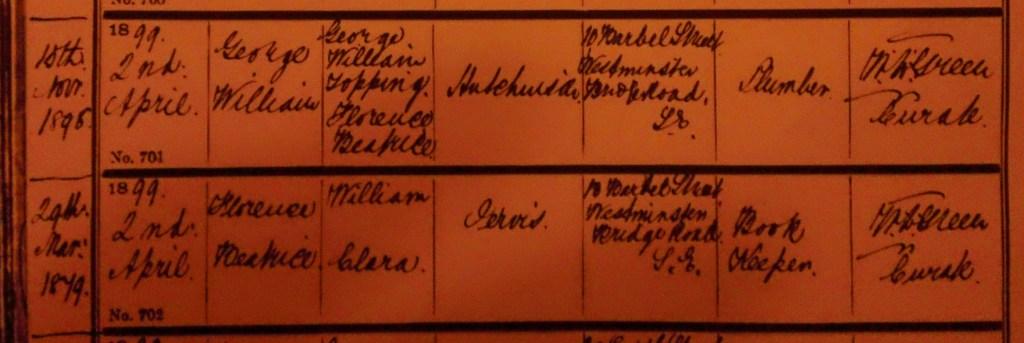 15th.
Novr.
1898.
1899.
2nd.
April.
No. 701
George
William
George
William
Topping.
Florence
Beatrice.
Hutchinson.
10 Barbel Street
Westminster
Bridge Road,
S.E.
Plumber.
W. H. Green
Curate.
29th.
Mar:
1879.
1899.
2nd.
April.
No. 702
Florence
Beatrice.
William
Clara.
Jervis.
10 Barbel Street
Westminster
Bridge Road.
S. E.
Book
Keeper.
W. H. Green
Curate.